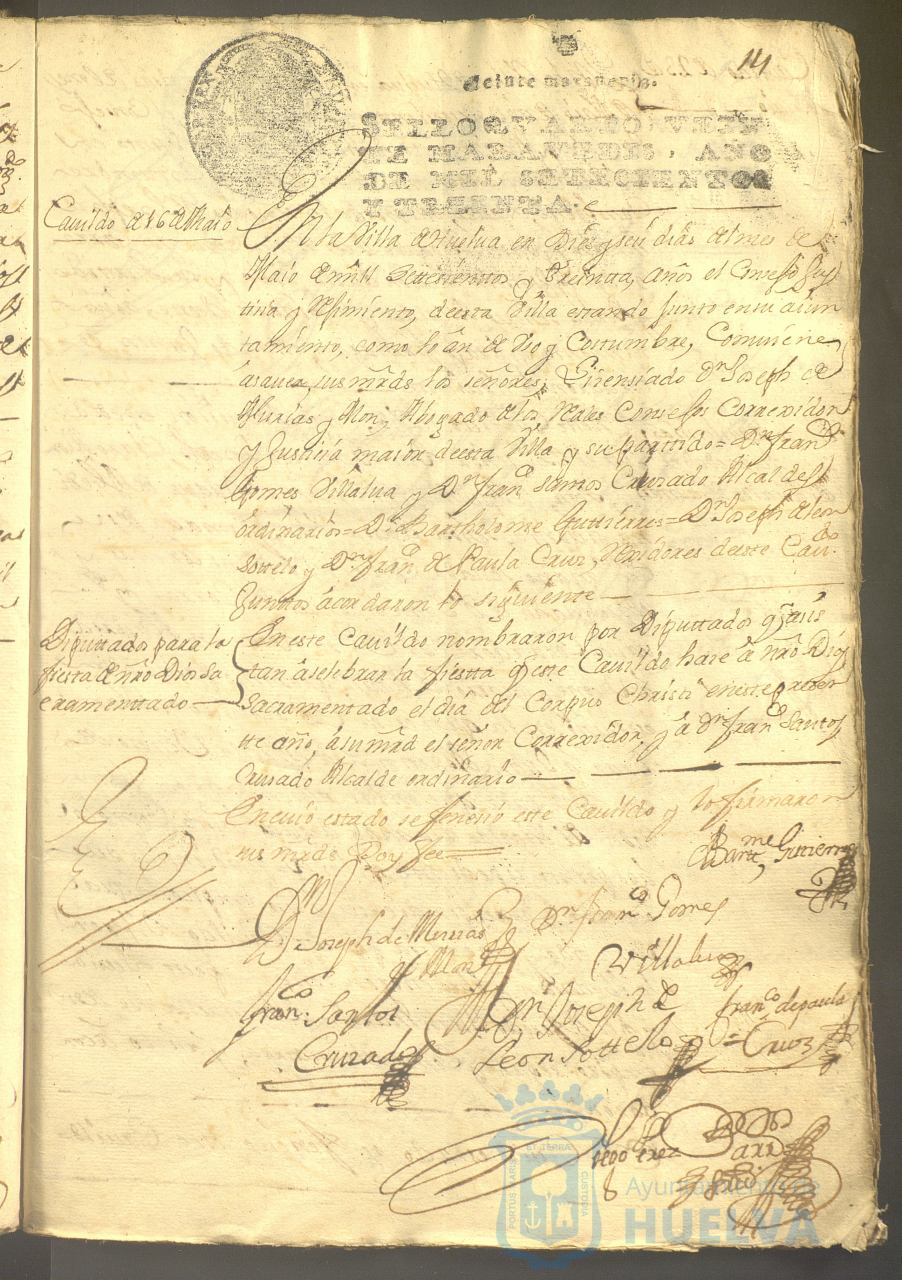 14
Veinte maravedis.
SELLO QVARTO, VEIN
TE MARAVEDIS, AÑO
DE MIL SETECIENTOS
Y TREINTA.
Cavildo de 16 de Maio
En la Villa de Huelva en Diez y seis dias del mes de
Maio de mill settecienttos y treinta, años el Consejo Jus
ticia y Rejimiento, de esta Villa estando Junto en su aiun
tamiento, como lo án de Uso y Costumbre, Combiene
ásaver, sus mrds los señores, Lisensiado Dn. Joseph de
Murias y Mon, Abogado de los Reales Consejos Correxidor
y Justicia maior de esta Villa y su partido= Dn. Franco.
Gomes Villalva y Dn. Franco. Santos Cruzado Alcaldes
ordinarios= Dn. Bartholome Guttierres= Dn. Joseph de leon
sottelo y Dn. Franco. de Paula Cruz, Rexidores de este Cavdo.
Junttos ácordaron lo siguiente
Diputtados para la
fiesta de nro Dios Sa
cramenttado
En este Cavildo nombraron por Diputtados q asis
tan áselebrar la fiestta q este Cavildo hace á nro Dios
Sacramentado el dia del Corpus Christi en este presen
te año, á su mrd el señor Correxidor, y á Dn. Franco. Santos
Crusado Alcalde ordinario
En cuio estado se feneció este Cavildo y lo firmaron
sus mrds Doy fee
Barme. Gutierres
Dn. Joseph de Murias
y Mon
Dn. Franco. Gomes
Villalva
Franco. Santos
Cruzado
Dn. Joseph de
Leon Sottelo
Franco. de paula
Cruz
Diego Perez
PORTUS MARIS ET TERRAE CUSTODIA
Ayuntamiento de
HUELVA